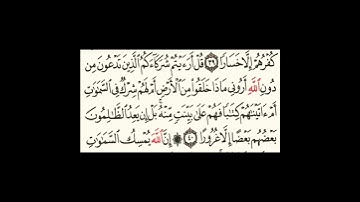 كُفْرُهُمْ إِلَّا خَسَارًا ٣٩ قُلْ أَرَءَيْتُمْ شُرَكَآءَكُمُ ٱلَّذِينَ تَدْعُونَ مِن
دُونِ ٱللَّهِ أَرُونِى مَاذَا خَلَقُوا۟ مِنَ ٱلْأَرْضِ أَمْ لَهُمْ شِرْكٌ فِى ٱلسَّمَٰوَٰتِ
أَمْ ءَاتَيْنَٰهُمْ كِتَٰبًا فَهُمْ عَلَىٰ بَيِّنَتٍ مِّنْهُ ۚ بَلْ إِن يَعِدُ ٱلظَّٰلِمُونَ
بَعْضُهُم بَعْضًا إِلَّا غُرُورًا ٤٠ ۞ إِنَّ ٱللَّهَ يُمْسِكُ ٱلسَّمَٰوَٰتِ